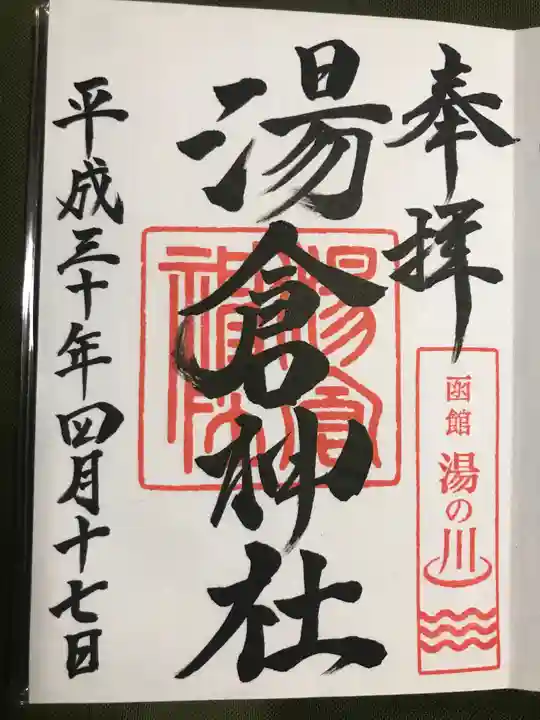 奉拝
函館
湯の川
湯倉神社
平成三十年四月十七日